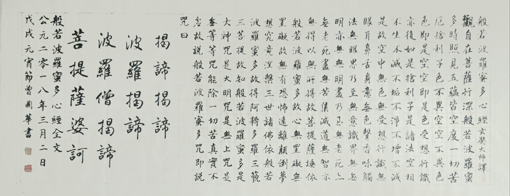 般若波羅蜜多心經 玄奘大師譯
觀自在菩薩行深般若波羅蜜
多時照見五蘊皆空度一切苦
厄舍利子色不異空空不異
色色即是空空即是色受想行識
亦復如是舍利子是諸法空相
不生不滅不垢不淨不增不減
是故空中無色無受想行識無
眼耳鼻舌身意無色聲香味觸
法無眼界乃至無意識界無無
明亦無無明盡乃至無老死亦
無老死盡無苦集滅道無智亦
無得以無所得故菩提薩埵依
般若波羅蜜多故心無罣礙無
罣礙故無有恐怖遠離顛倒夢
想究竟涅槃三世諸佛依般若
波羅蜜多故得阿耨多羅三藐
三菩提故知般若波羅蜜多是
大神咒是大明咒是無上咒是無
等等咒能除一切苦真實不虛
故說般若波羅蜜多咒即說
咒曰
揭諦揭諦
波羅揭諦
波羅僧揭諦
菩提薩婆訶
般若波羅蜜多心經全文
公元二零一八年三月二日
戊戌元宵節曾國華書